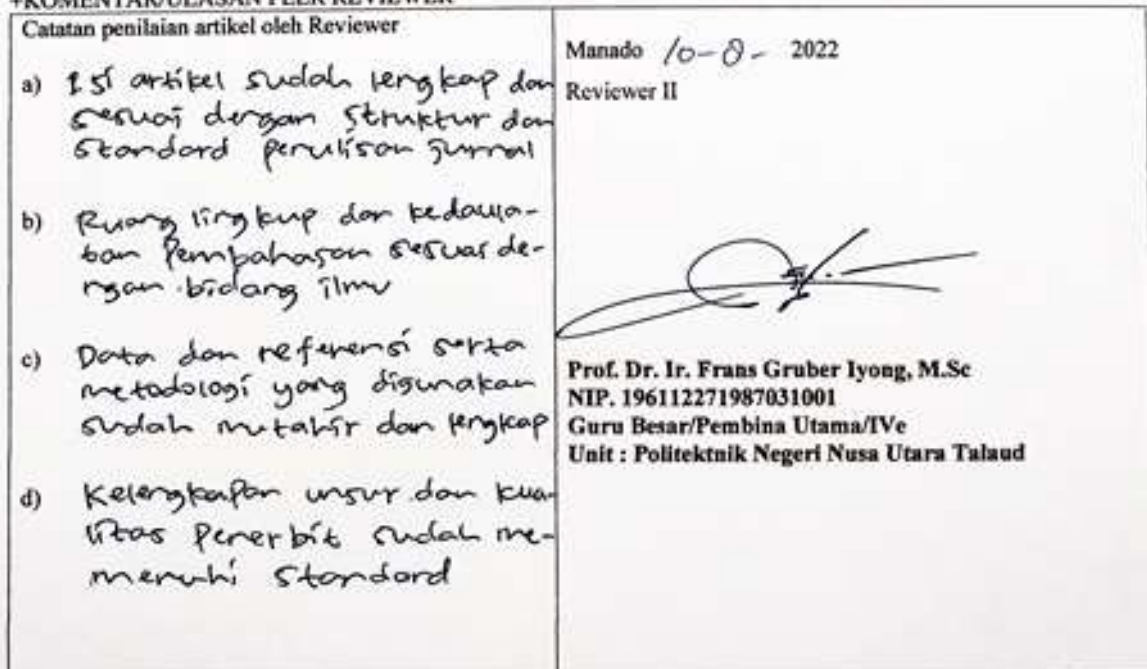 +KOMENTAR/ULASAN PEER REVIEWER
Catatan penilaian artikel oleh Reviewer
a) Isi artikel sudah lengkap dan
sesuai dengan struktur dan
standard penulisan jurnal
b) Ruang lingkup dan kedawa-
ban pembahasan sesuai de-
ngan bidang ilmu
c) Data dan referensi serta
metodologi yang digunakan
sudah mutahir dan lengkap
d) Kelengkapan unsur dan kua-
litas Penerbit sudah me-
menuhi standard
Manado 10-8- 2022
Reviewer II
Prof. Dr. Ir. Frans Gruber Iyong, M.Sc
NIP. 196112271987031001
Guru Besar/Pembina Utama/IVe
Unit : Politektnik Negeri Nusa Utara Talaud